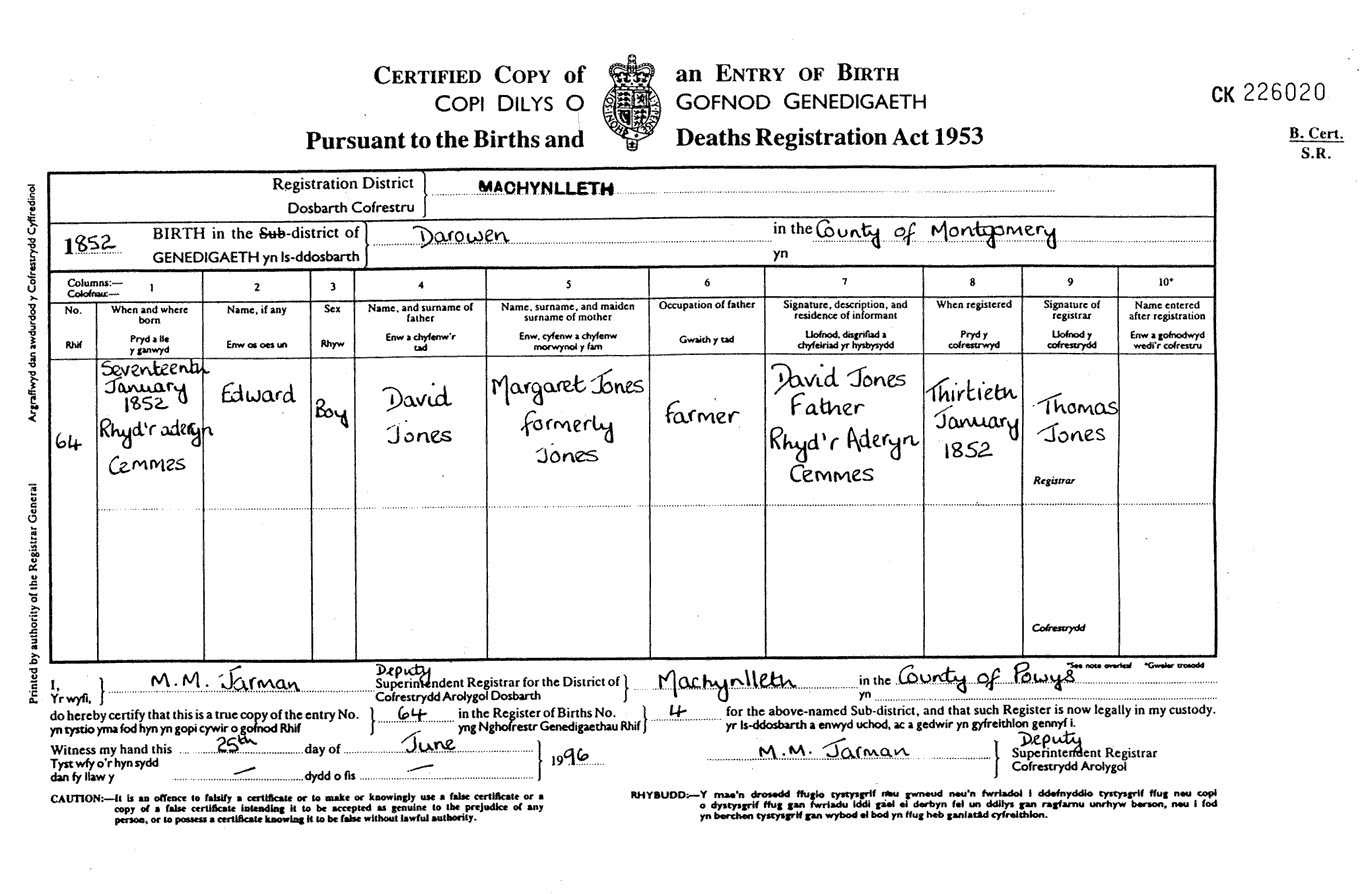 CERTIFIED COPY of an ENTRY OF BIRTH
COPI DILYS O GOFNOD GENEDIGAETH
Pursuant to the Births and Deaths Registration Act 1953
CK 226020
B. Cert.
S.R.
Argraffwyd dan awdurdod y Cofrestrydd Cyffredinol
Printed by authority of the Registrar General
Registration District MACHYNLLETH
Dosbarth Cofrestru
1852 BIRTH in the Sub-district of Darowen in the County of Montgomery
GENEDIGAETH yn Is-ddosbarth yn
Columns:— 1 2 3 4 5 6 7 8 9 10*
Colofnau:—
No.
Rhif
When and where
born
Pryd a lle
y ganwyd
Name, if any
Enw os oes un
Sex
Rhyw
Name, and surname of
father
Enw a chyfenw'r
tad
Name, surname, and maiden
surname of mother
Enw, cyfenw a chyfenw
morwynol y fam
Occupation of father
Gwaith y tad
Signature, description, and
residence of informant
Llofnod, disgrifiad a
chyfeiriad yr hysbysydd
When registered
Pryd y
cofrestrwyd
Signature of
registrar
Llofnod y
cofrestrydd
Name entered
after registration
Enw a gofnodwyd
wedi'r cofrestru
64
Seventeenth
January
1852
Rhyd'r aderyn
Cemmes
Edward
Boy
David
Jones
Margaret Jones
formerly
Jones
farmer
David Jones
Father
Rhyd'r Aderyn
Cemmes
Thirtieth
January
1852
Thomas
Jones
Registrar
Cofrestrydd
*See note overleaf *Gweler trosodd
I, M. M. Jarman Deputy Superintendent Registrar for the District of Machynlleth in the County of Powys
Yr wyfi, Cofrestrydd Arolygol Dosbarth yn
do hereby certify that this is a true copy of the entry No. 64 in the Register of Births No. 4 for the above-named Sub-district, and that such Register is now legally in my custody.
yn tystio yma fod hyn yn gopi cywir o gofnod Rhif yng Nghofrestr Genedigaethau Rhif yr Is-ddosbarth a enwyd uchod, ac a gedwir yn gyfreithlon gennyf i.
Witness my hand this 25th day of June 1996 M. M. Jarman Deputy Superintendent Registrar
Tyst wfy o'r hyn sydd Cofrestrydd Arolygol
dan fy llaw y — dydd o fis —
CAUTION:—It is an offence to falsify a certificate or to make or knowingly use a false certificate or a
copy of a false certificate intending it to be accepted as genuine to the prejudice of any
person, or to possess a certificate knowing it to be false without lawful authority.
RHYBUDD:—Y mae'n drosedd ffugio tystysgrif neu gwneud neu'n fwriadol i ddefnyddio tystysgrif ffug neu copi
o dystysgrif ffug gan fwriadu iddi gael ei derbyn fel un ddilys gan ragfarnu unrhyw berson, neu i fod
yn berchen tystysgrif gan wybod ei bod yn ffug heb ganiatâd cyfreithlon.